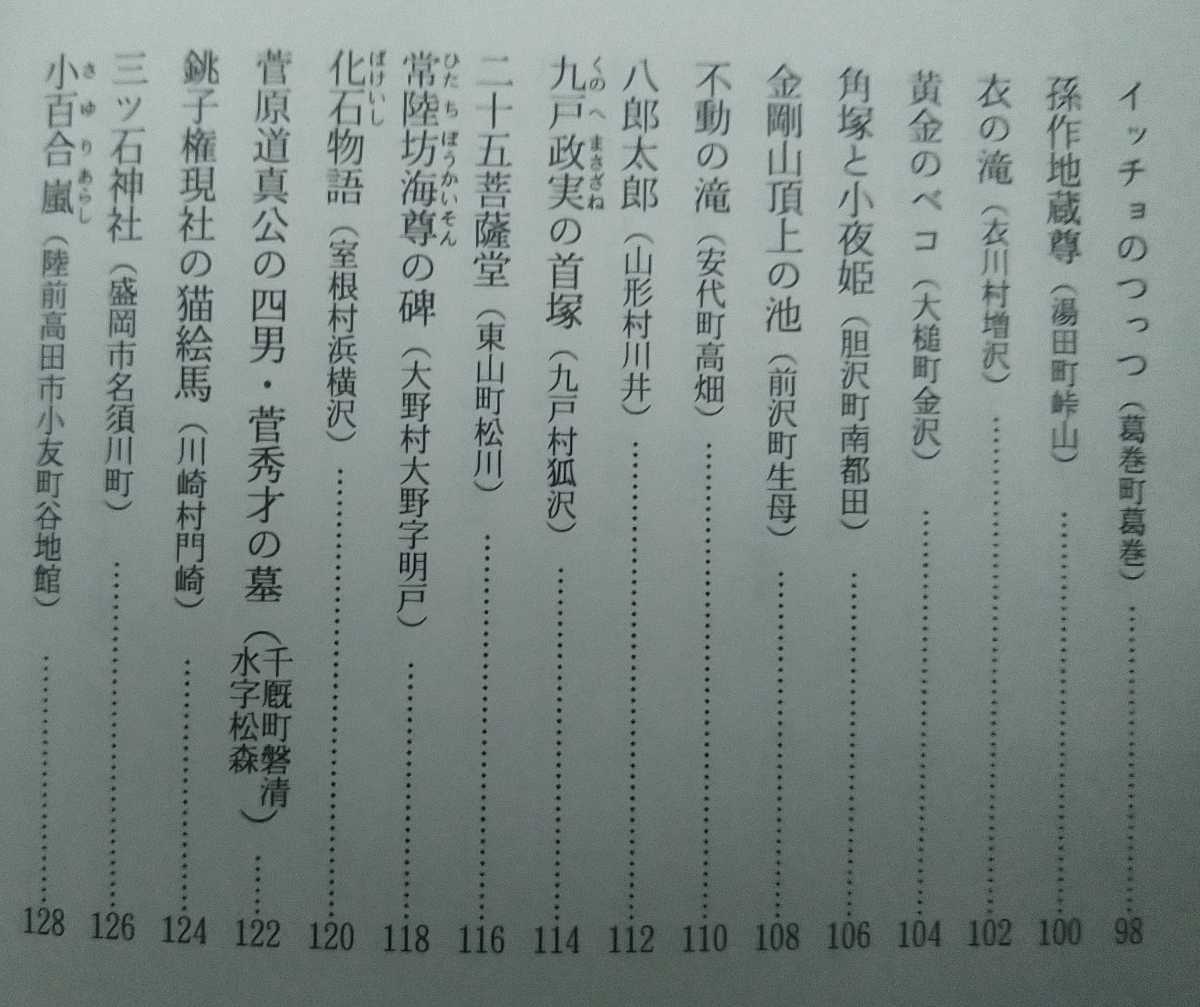 イッチョのつっつ（葛巻町葛巻）……98
孫作地蔵尊（湯田町峠山）……100
衣の滝（衣川村増沢）……102
黄金のベコ（大槌町金沢）……104
角塚と小夜姫（胆沢町南都田）……106
金剛山頂上の池（前沢町生母）……108
不動の滝（安代町高畑）……110
八郎太郎（山形村川井）……112
九戸政実の首塚（九戸村狐沢）……114
くのへまさざね
二十五菩薩堂（東山町松川）……116
常陸坊海尊の碑（大野村大野字明戸）……118
ひたちぼうかいそん
化石物語（室根村浜横沢）……120
ばけいし
菅原道真公の四男・菅秀才の墓（千厩町磐清水字松森）……122
銚子権現社の猫絵馬（川崎村門崎）……124
三ツ石神社（盛岡市名須川町）……126
小百合嵐（陸前高田市小友町谷地館）……128
さゆりあらし